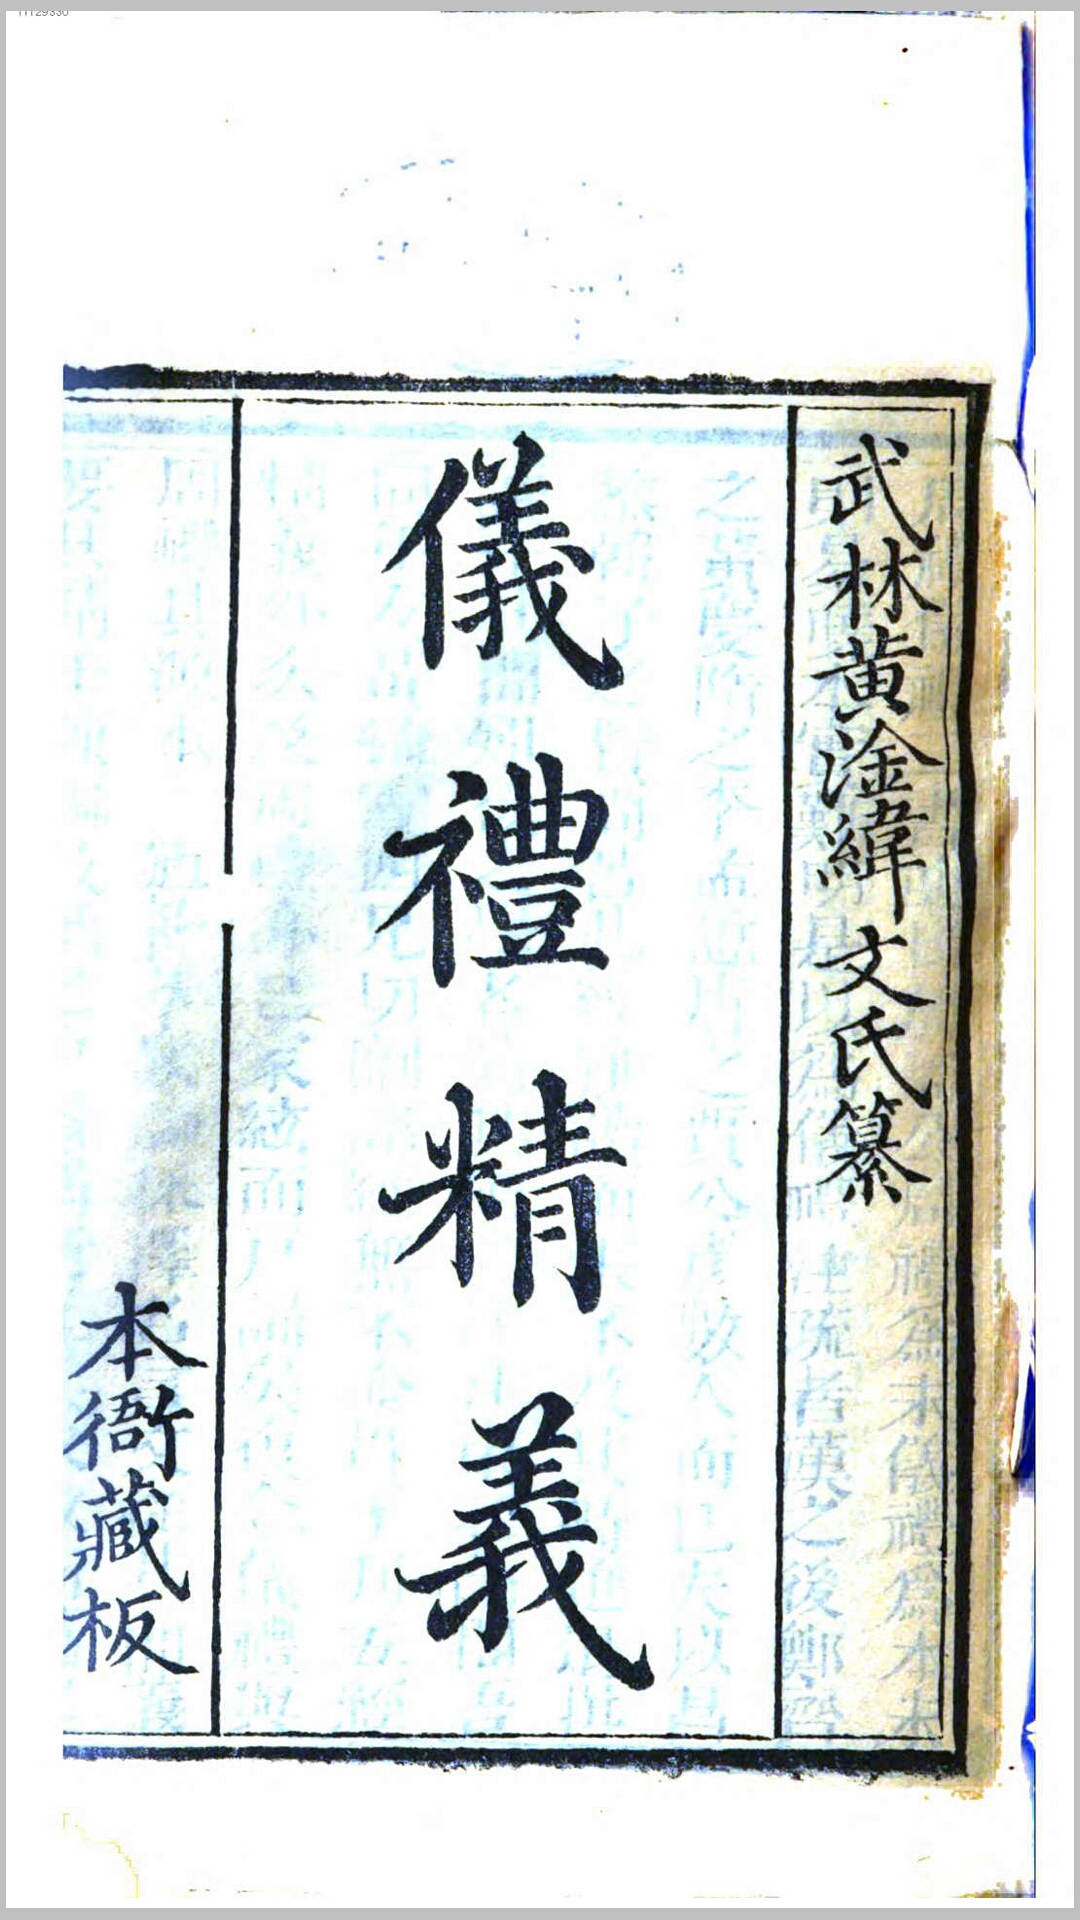 武林黄淦緯文氏纂
儀禮精義
本衙藏板